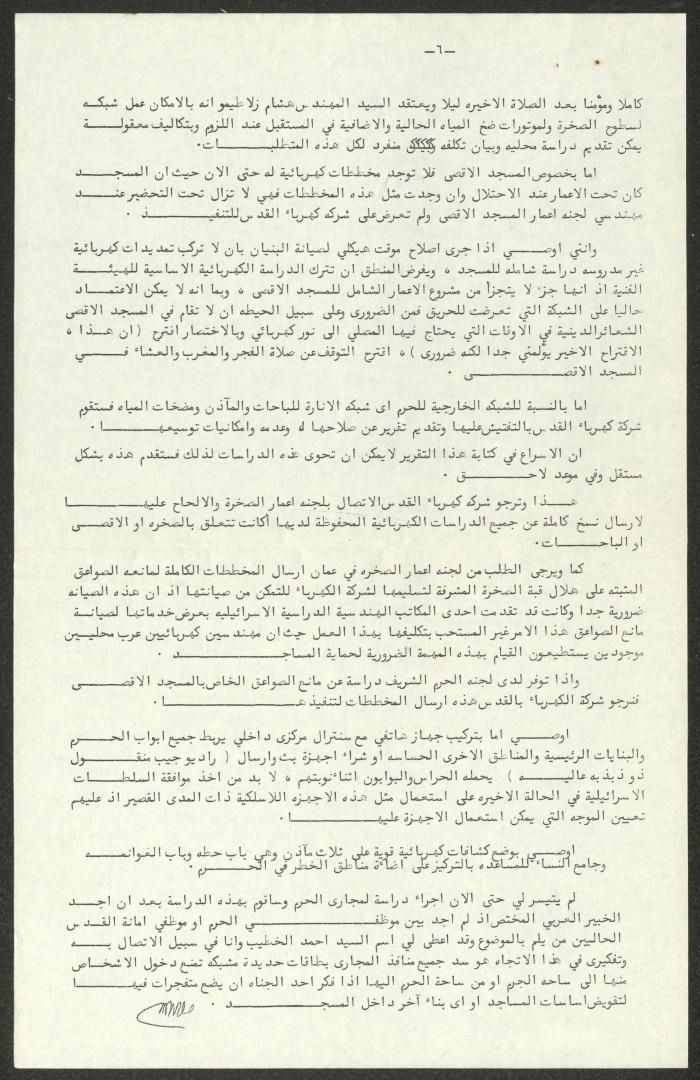 -٦-
كاملا ومؤمنا بعد الصلاة الاخيره ليلا ويعتقد السيد المهندس هشام زلاطيمو انه بالامكان عمل شبكه
لسطوح الصخرة ولموتورات ضخ المياه الحالية والاضافية في المستقبل عند اللزوم وبتكاليف معقولة
يمكن تقديم دراسة محليه وبيان تكلفه منفرد لكل هذه المتطلبات.
اما بخصوص المسجد الاقصى فلا توجد مخططات كهربائية له حتى الان حيث ان المسجد
كان تحت الاعمار عند الاحتلال وان وجدت مثل هذه المخططات فهي لا تزال تحت التحضير عند
مهندسي لجنه اعمار المسجد الاقصى ولم تعرض على شركه كهرباء القدس للتنفيذ .
وانني اوصي اذا جرى اصلاح موقت هيكلي لصيانة البنيان بان لا تركب تمديدات كهربائية
غير مدروسه دراسة شامله للمسجد ، ويفرض المنطق ان تترك الدراسة الكهربائية الاساسية للهيئة
الفنية اذ انها جزء لا يتجزأ من مشروع الاعمار الشامل للمسجد الاقصى ، وبما انه لا يمكن الاعتماد
حاليا على الشبكة التي تعرضت للحريق فمن الضرورى وعلى سبيل الحيطه ان لا تقام في المسجد الاقصى
الشعائر الدينية في الاوقات التي يحتاج فيها المصلي الى نور كهربائي وبالاختصار اقترح ( ان هذا ،
الاقتراح الاخير يؤلمني جدا لكنه ضرورى ) ، اقترح التوقف عن صلاة الفجر والمغرب والعشاء في
المسجد الاقصى .
اما بالنسبة للشبكه الخارجية للحرم اى شبكه الانارة للباحات والمآذن ومضخات المياه فستقوم
شركة كهرباء القدس بالتفتيش عليها وتقديم تقرير عن صلاحها له وعدمه وامكانيات توسيعها .
ان الاسراع في كتابة هذا التقرير لا يمكن ان تحوى هذه الدراسات لذلك فستقدم هذه بشكل
مستقل وفي موعد لاحق .
هذا وترجو شركه كهرباء القدس الاتصال بلجنه اعمار الصخرة والالحاح عليها
لارسال نسخ كاملة عن جميع الدراسات الكهربائية المحفوظة لديها أكانت تتعلق بالصخره او الاقصى
او الباحات.
كما ويرجى الطلب من لجنه اعمار الصخره في عمان ارسال المخططات الكاملة لمانعه الصواعق
المثبته على هلال قبة الصخرة المشرفة لتسليمها لشركة الكهرباء للتمكن من صيانتها اذ ان هذه الصيانه
ضرورية جدا وكانت قد تقدمت احدى المكاتب الهندسية الدراسية الاسرائيليه بعرض خدماتها لصيانة
مانع الصواعق هذا الامر غير المستحب بتكليفها بهذا العمل حيث ان مهندسين كهربائيين عرب محليين
موجودين يستطيعون القيام بهذه المهمة الضرورية لحماية المساجد .
واذا توفر لدى لجنه الحرم الشريف دراسة عن مانع الصواعق الخاص بالمسجد الاقصى
فنرجو شركة الكهرباء بالقدس هذه ارسال المخططات لتنفيذها .
اوصي اما بتركيب جهاز هاتفي مع سنترال مركزى داخلي يربط جميع ابواب الحرم
والبنايات الرئيسية والمناطق الاخرى الحساسه او شراء اجهزة بث وارسال ( راديو جيب منقول
ذو ذبذبه عاليه ) يحمله الحراس والبوابون اثناء نوبتهم ، لا بد من اخذ موافقة السلطات
الاسرائيلية في الحالة الاخيره على استعمال مثل هذه الاجهزه اللاسلكية ذات المدى القصير اذ عليهم
تعيين الموجه التي يمكن استعمال الاجهزة عليها .
اوصي بوضع كشافات كهربائية قوية على ثلاث مآذن وهي باب حطه وباب الغوانمه
وجامع النساء للمساعده بالتركيز على اضاءة مناطق الخطر في الحرم .
لم يتيسر لي حتى الان اجراء دراسة لمجارى الحرم وساقوم بهذه الدراسة بعد ان اجد
الخبير العربي المختص اذ لم اجد بين موظفي الحرم او موظفي امانة القدس
الحاليين من يلم بالموضوع وقد اعطى لي اسم السيد احمد الخطيب وانا في سبيل الاتصال به
وتفكيرى في هذا الاتجاه هو سد جميع منافذ المجارى بطاقات حديدة مشبكه تمنع دخول الاشخاص
منها الى ساحه الحرم او من ساحة الحرم اليها اذا فكر احد الجناه ان يضع متفجرات فيها
لتقويض اساسات المساجد او اى بناء آخر داخل المسجد .